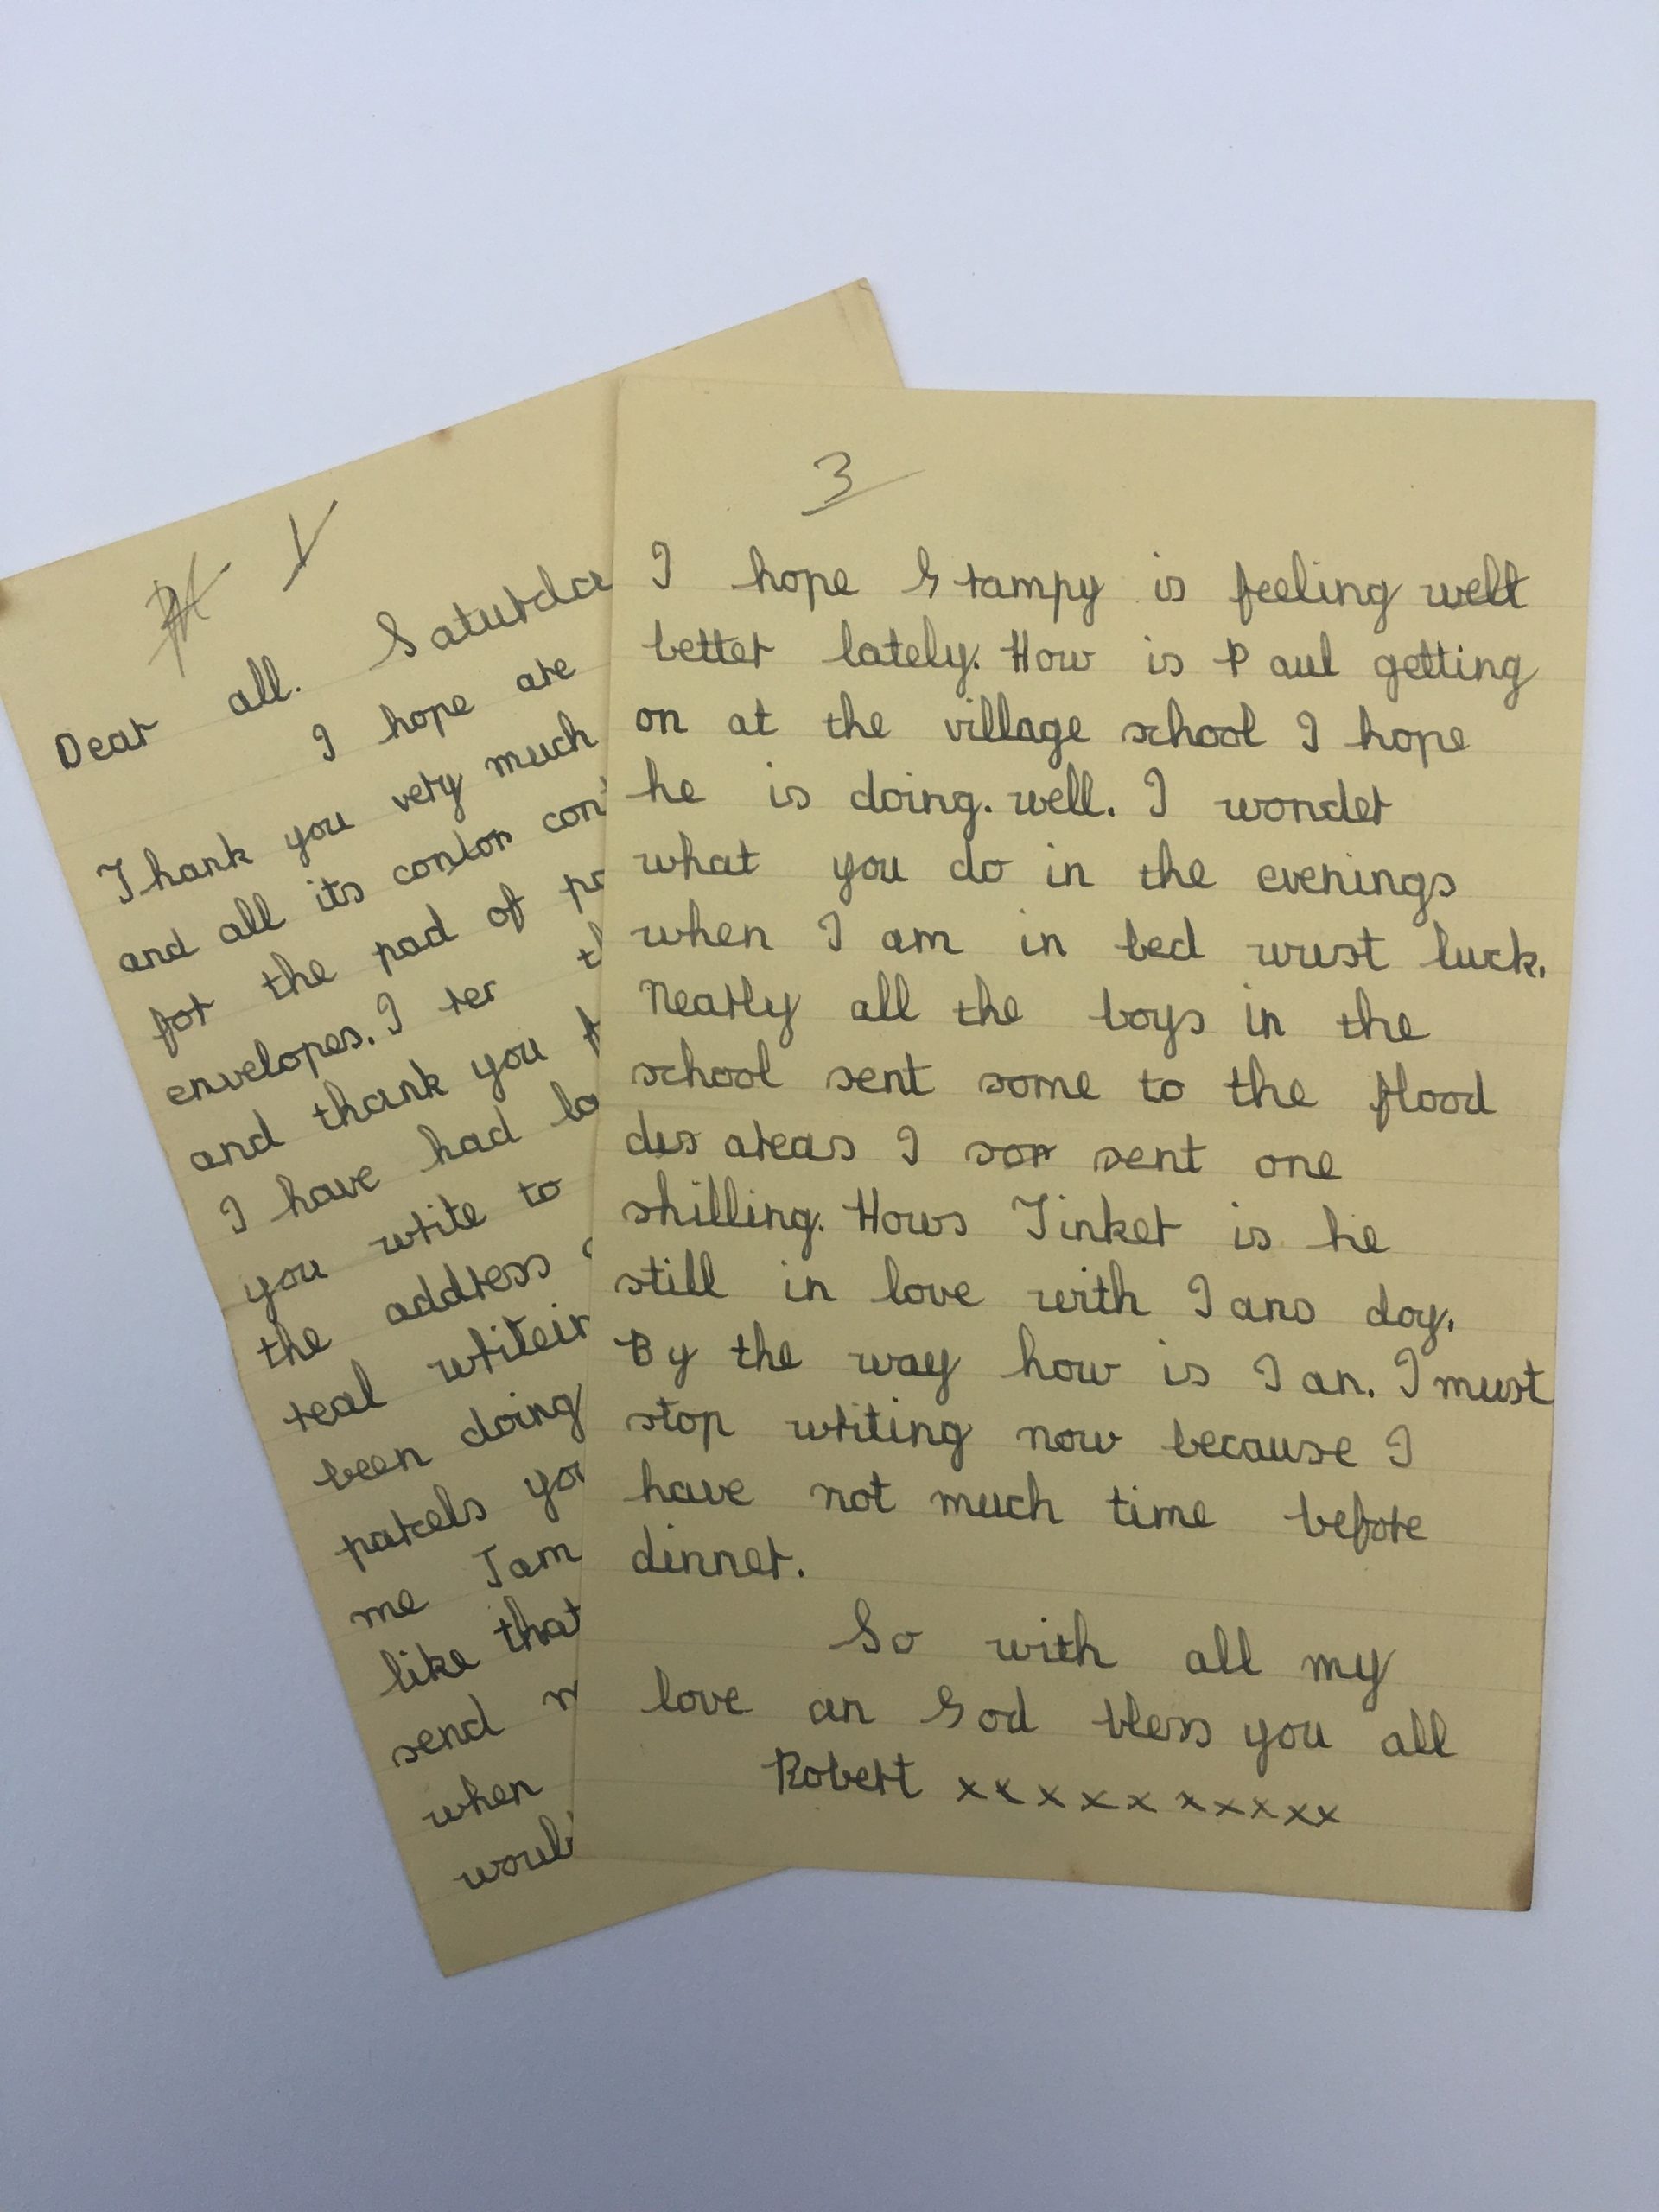 1
Dear all. Saturda
I hope are
Thank you very much
and all its conton con
for the pad of pa
envelopes. I ter t
and thank you f
I have had lo
you write to
the address
real writein
been doing
parcels you
me I am
like that
send m
when
would
3
I hope Stampy is feeling well
better lately. How is Paul getting
on at the village school I hope
he is doing. well. I wonder
what you do in the evenings
when I am in bed wust luck.
Nearly all the boys in the
school sent some to the flood
des areas I sor sent one
shilling. Hows Tinker is he
still in love with Ians dog.
By the way how is Ian. I must
stop writing now because I
have not much time before
dinner.
So with all my
love an God bless you all
Robert xxxxxxxxxx